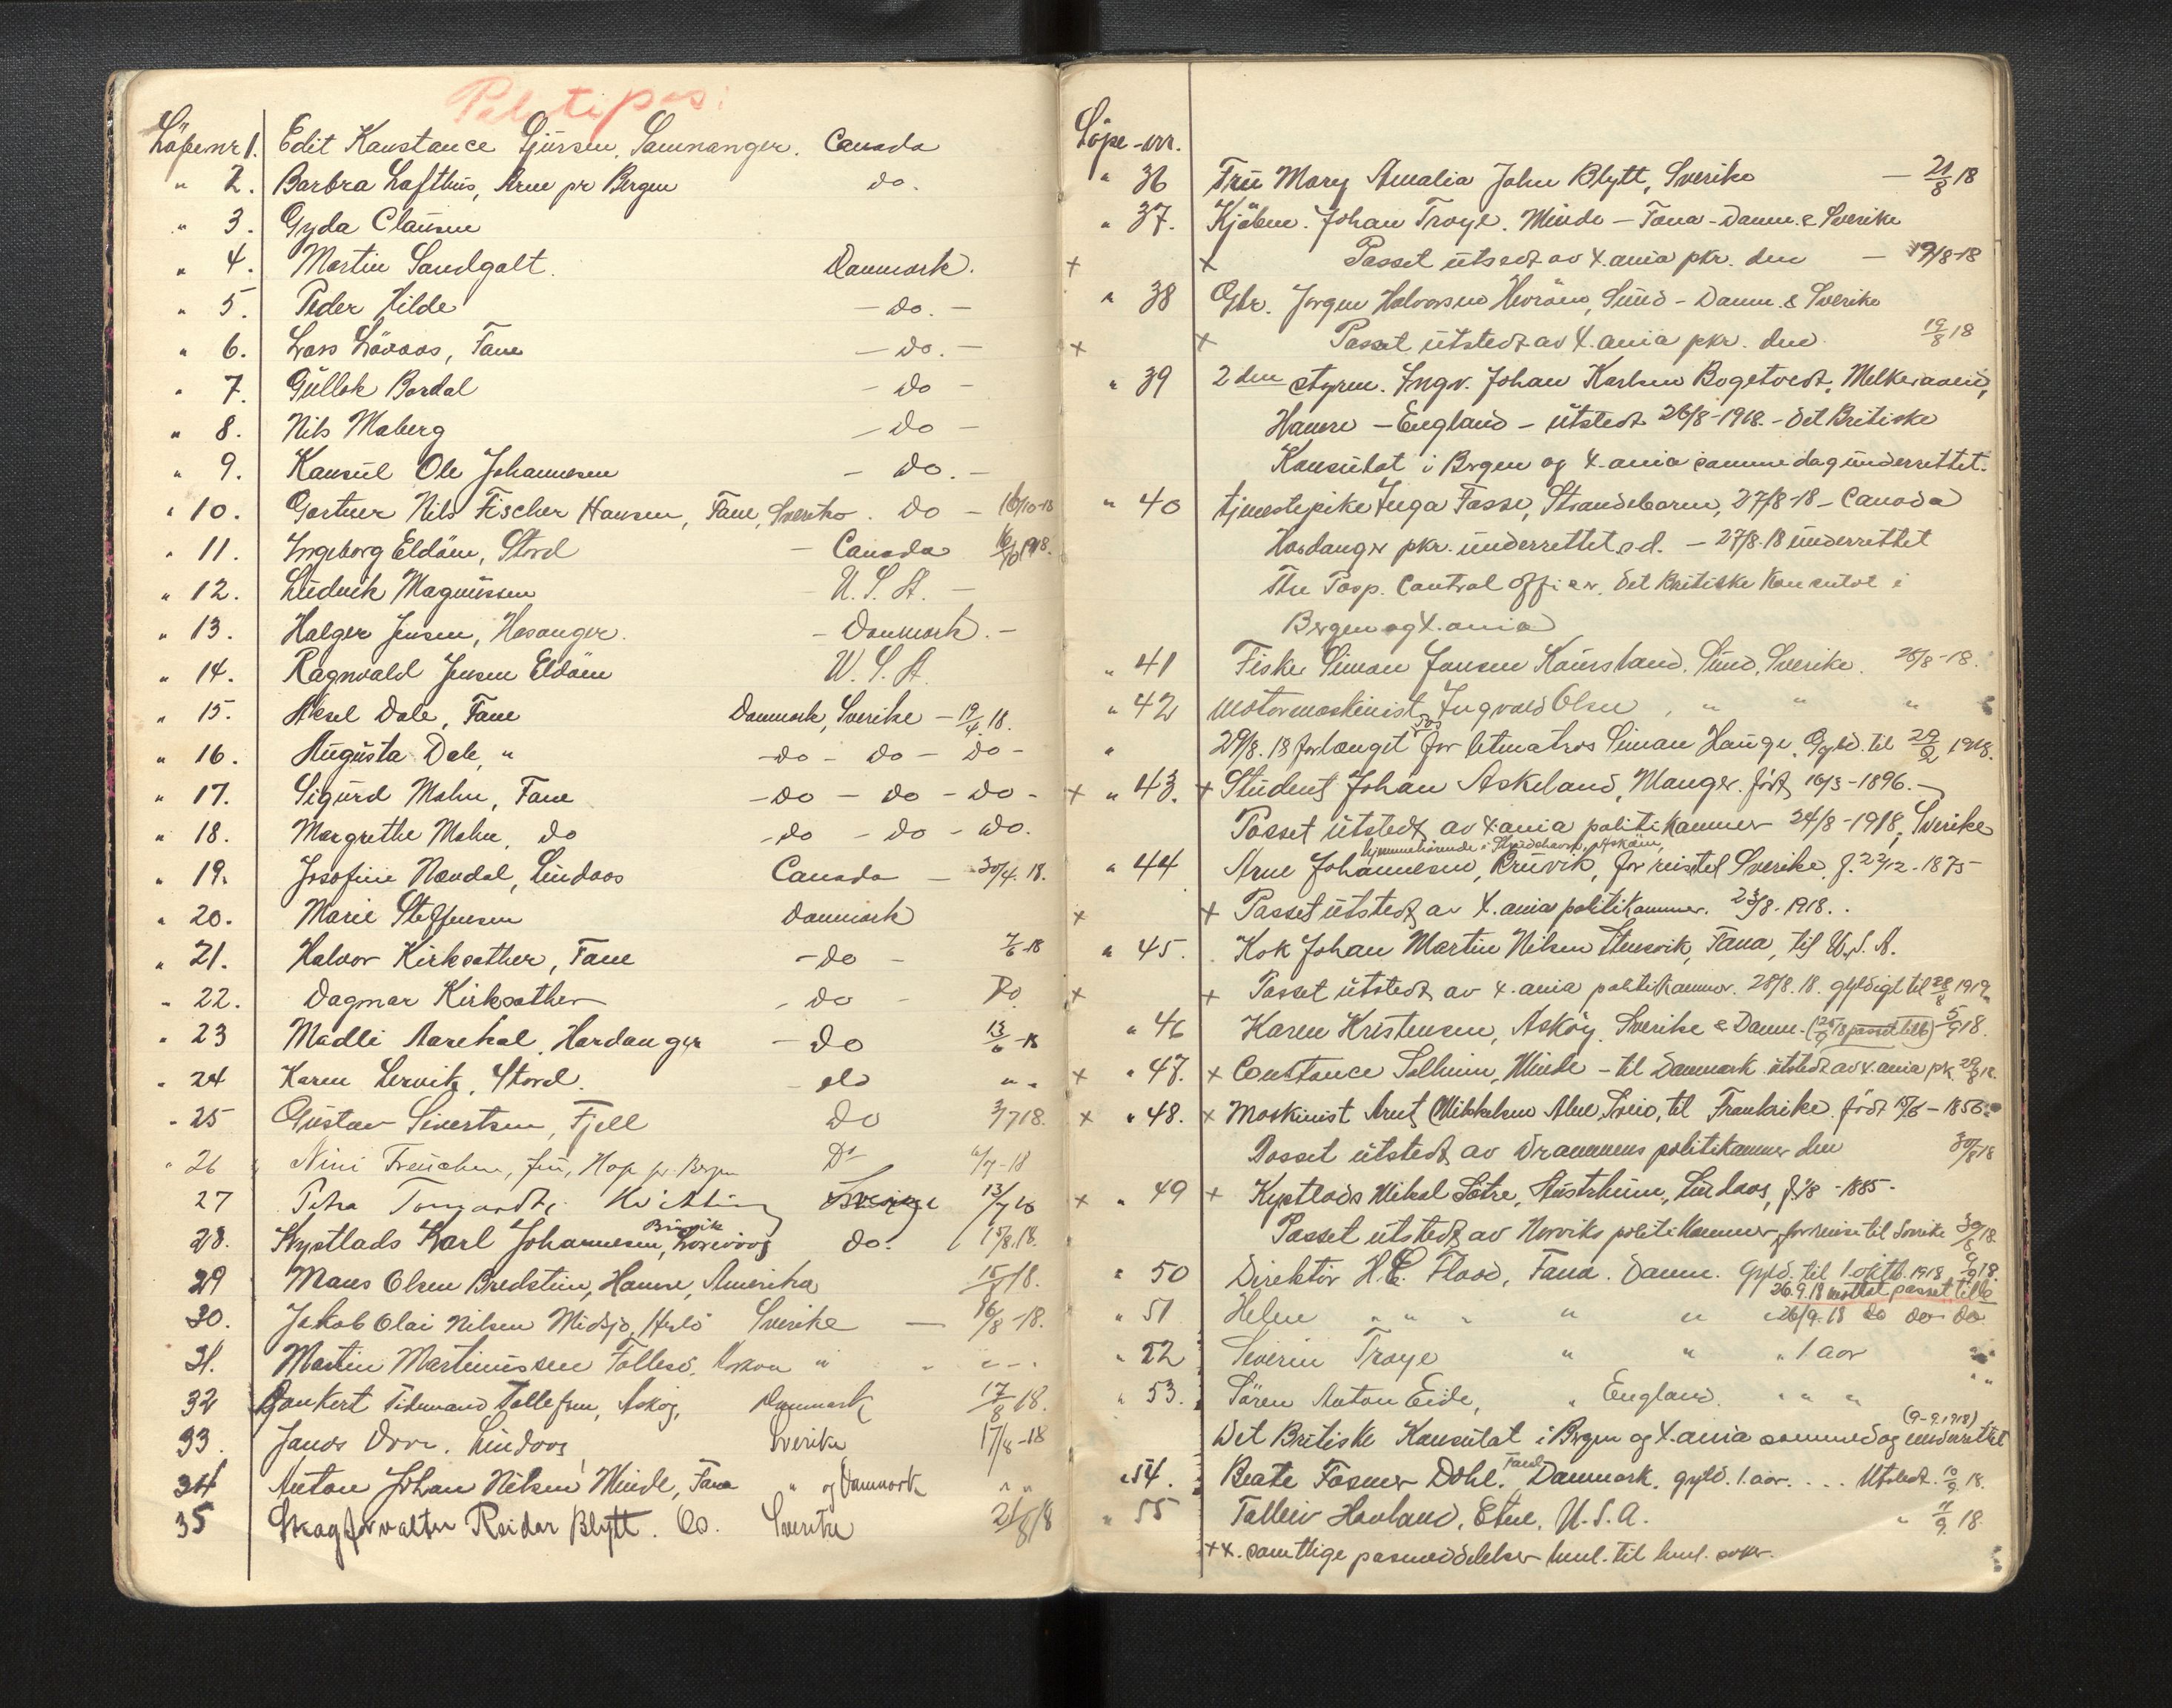 Löpenr 1. Edit Konstance Sjursen, Samnanger. Canada
" 2. Barbra Lofthus, Arne pr Bergen do.
" 3. Gyda Clausen
" 4. Martin Sandgolt. Danmark.
" 5. Peder Hilde — do. —
" 6. Lars Lövaas, Fane — do. —
" 7. Gullek Bordal — do —
" 8. Nils Moberg — do —
" 9. Konsul Ole Johannesen — do. —
" 10. Gartner Nils Fischer Hansen, Fane, Sverike. do — 16/10-18
" 11. Ingeborg Eldöen, Stord — Canada 16/10 1918.
" 12. Ludvik Magnussen U.S.A. —
" 13. Holger Jensen, Hosanger. — Danmark. —
" 14. Ragnvald Jensen Eldöen U.S.A.
" 15. Aksel Dale, Fane Danmark, Sverike — 19/4 18.
" 16. Augusta Dale, " — do — do — do —
" 17. Sigurd Mohn, Fane — do — do — do —
" 18. Margrethe Mohn, do — do — do — do.
" 19. Josefine Nævdal, Lindaas Canada — 30/4. 18.
" 20. Marie Steffensen Danmark
" 21. Halvor Kirksæther, Fane — do — 7/6-18
" 22. Dagmar Kirksæther — do — Do.
" 23 Madli Aarekol, Hardanger — do 13/6-18
" 24 Karen Lervik, Stord. — do " "
" 25 Gustav Sivertsen, Fjell do 3/7 18.
" 26 Nini Freuchen, fru, Hop pr. Bergen Do /7-18
27 Petra Sverige 13/7
28. Kystlods Karl Johannesen, do. 15/8.18.
29 Mons Olsen Bredstuen, Hamre, Amerika 15/8 18.
30. Jakob Olai Nilsen Midsjö, Herlö Sverike — 16/8-18.
31. Martin Martinussen Follesö, Askøy " " " - .
32 Tidemand Tollefsen, Askøj, Danmark 17/8 18.
33. Lindaas, Sverike 17/8-18
34 Anton Johan Nilsen Minde, Fane " og Danmark " "
35 Skogforvalter Reidar Blytt. Os. Sverike 21/8 18
Löpe-nr.
" 36 Fru Mary Amalia John Blytt, Sverike — 21/8 18
" 37. Kjöbm. Johan Troye. Minde — Fana - Danm. & Sverike
+ + Passet utstedt av X.ania pkr. den — 19/8-18
" 38 Gbr. Jorgen Halvorsen, Sund - Danm. & Sverike
+ + Passet utstedt av X.ania pkr. den 19/8 18
" 39 2den styrm. Ingv. Johan Karlsen Bogetvedt,
Hamre — England — utstedt 26/8-1918. - Det Britiske
Konsulat i Bergen og X.ania samme dag underrettet.
" 40 tjenestepike Inga Fosse, Strandebarm, 27/8-18 - Canada
Hardanger pkr. underrettet s.d. — 27/8.18 underrettet
The Pasp. Control Officer, det Britiske Konsulat i
Bergen og X.ania
" 41 Fisker Simon Jansen Kausland, Sund, Sverike. 28/8-18.
" 42 motormaskinist Ingvald Olsen, " " "
" 29/8. 18 forlænget pas for letmatros Simon Hauge. Gyld. til 29/2 1918.
+ " 43. + Student Johan Askeland, Manger. född 16/3-1896. —
Passet utstedt av X.ania politikammer 24/8-1918, Sverike
" 44 Arne Johannesen, Bruvik, for reise til Sverike, f. 22/12-1875-
+ + Passet utstedt av X.ania politikammer. 23/8-1918. .
" 45. Kok Johan Martin Nilsen Stensvik, Fana, til U.S.A.
+ + Passet utstedt av X.ania politikammer. 28/8.18. gyldigt til 28/8 1919.
" 46 Karen Kristensen, Askøy, Sverike & Danm. 5/9 18.
+ " 47. + Constance Solheim, Minde — til Danmark utstedt av X.ania pk. 29/8 18.
+ " 48. + Maskinist Arnt Mikkelsen, Sveio, til Frankrike. född 15/6-1856.
Passet utstedt av Drammens politikammer den 30/8 18
+ " 49 + Kystlods Mikal Sætre, Austrheim, Lindaas, f. 1/8-1885-
Passet utstedt av Narviks politikammer, for reise til Sverike 30/8 18.
" 50 Direktör H.C. Flood, Fana. Danm. Gyld. til 1. oktb. 1918 6/9 18.
26.9.18 mottat passet tilb.
" 51 Helen " " " " " 26/9.18 do do do
" 52 Severin Troye " " " 1 aar "
" 53. Sören Anton Eide, " England. " " " " "
(9-9.1918)
Det Britiske Konsulat i Bergen og X.ania samme dag underrettet
" 54. Beate Fasmer Dahl, Fana, Danmark. gyld. 1. aar. . . . Utstedt. 10/9 18.
" 55 Tolleiv Havland, Etne, U.S.A. " 11/9. 18.
++. samtlige pasmeddelelser henl. til henl. saker.